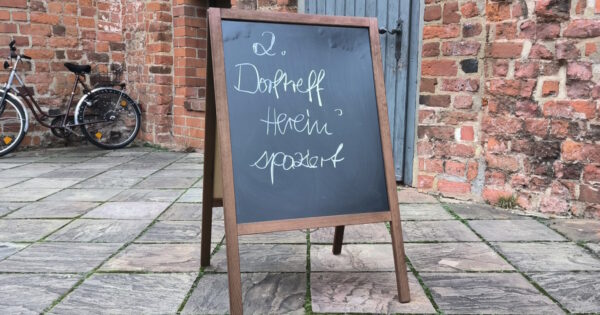 2.
Dorftreff
Herein'
spaziert